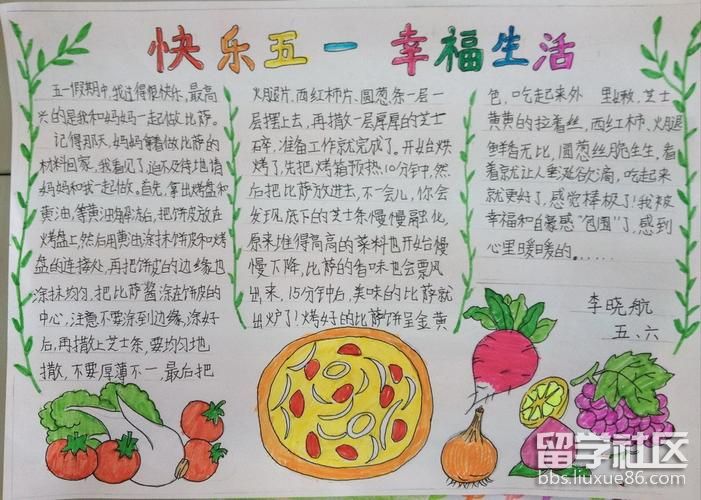 快乐五一 幸福生活
五一假期中,我过得很快乐,最高
兴的是我和妈妈一起做比萨。
记得那天,妈妈拿着做比萨的
材料回家,我看见了,迫不及待地请
妈妈和我一起做。首先,拿出烤盘和
黄油,等黄油解冻后,把饼皮放在
烤盘上,然后用黄油涂抹饼皮和烤
盘的连接处,再把饼皮的边缘也
涂抹均匀,把比萨酱涂在饼皮的
中心,注意不要涂到边缘,涂好
后,再撒上芝士条,要均匀地
撒,不要厚薄不一,最后把
火腿片,西红柿片,圆葱条一层一
层摆上去,再撒一层厚厚的芝士
碎,准备工作就完成了。开始烘
烤了,先把烤箱预热10分钟,然
后把比萨放进去,不一会儿,你会
发现底下的芝士条慢慢融化,
原来堆得高高的菜料也开始慢
慢下降,比萨的香味也会飘风
出来,15分钟后,美味的比萨就
出炉了!烤好的比萨饼呈金黄
色,吃起来外 里嫩,芝士
黄黄的拉着丝,西红柿、火腿
鲜香无比,圆葱丝脆生生,看
着就让人垂涎欲滴,吃起来
就更好了,感觉棒极了!我被
幸福和自豪感“包围”了,感到
心里暖暖的……
李晓航
五、六
留学社区
bbs.liuxue86.com